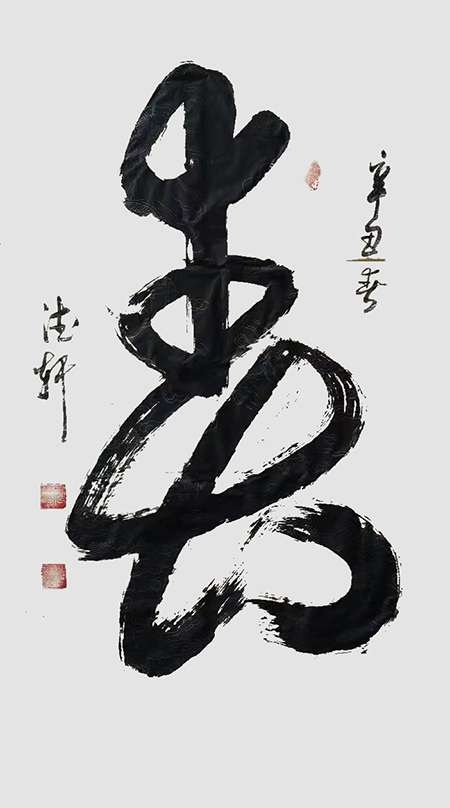 辛丑春
寿
德轩